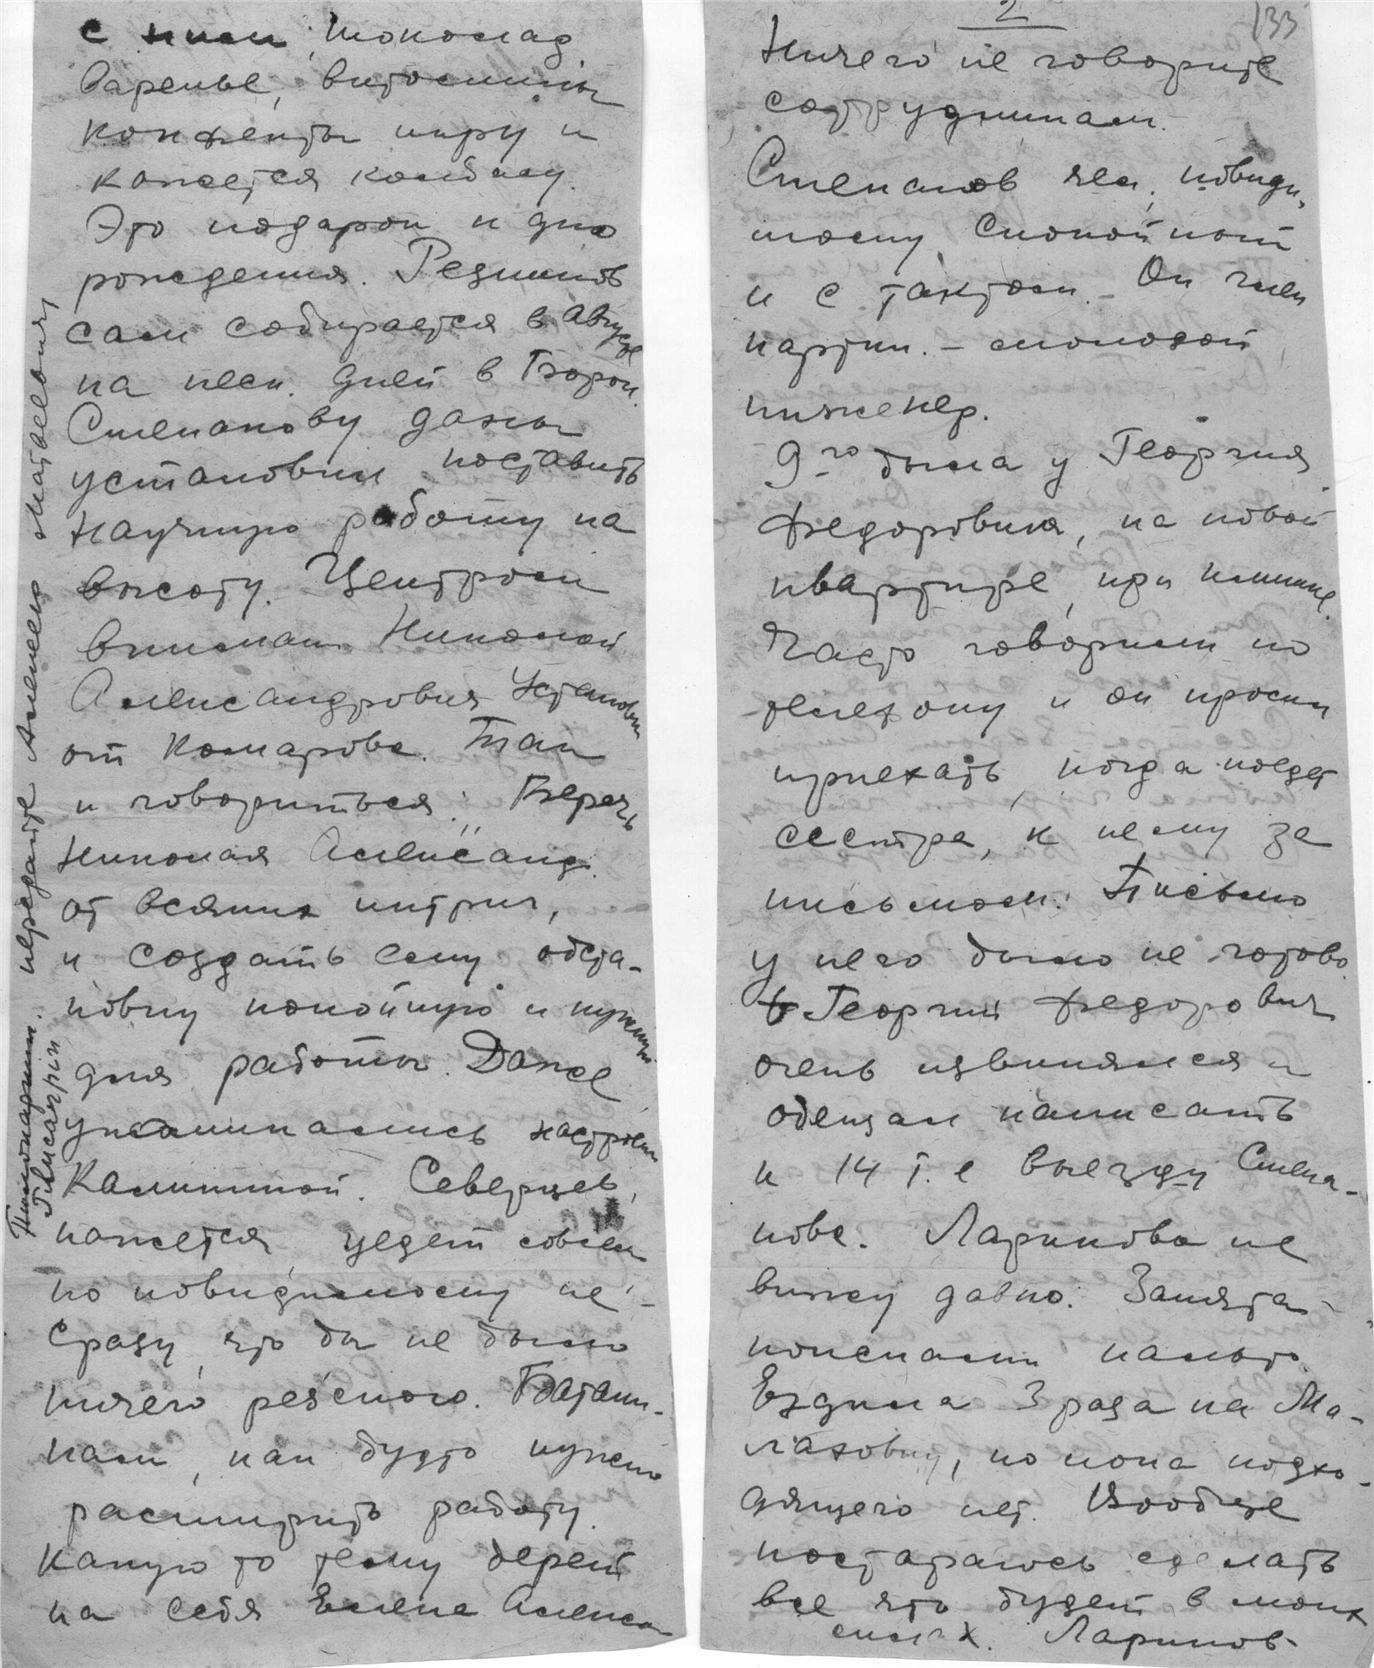 с ними шоколад
Варенье, витамины
конфеты икру и
кажется колбасу.
Это подарок к дню
рождения. Резников
сам собирается в августе
на неск. дней в Борок.
Степанову даны
установки поставить
научную работу на
высоту. Центром
внимания Николай
Александрович Установки
от Комарова. Так
и говориться: Беречь
Николая Александ.
от всяких интриг,
и создать ему обста-
новку покойную и нужную
для работы. Даже
упоминались настроения
Калининой. Северцев,
кажется, уедет совсем
но повидимому не
сразу, что бы не было
ничего резкого. Ботани-
кам, как будто нужно
расширить работу.
Какую то тему берет
на себя Елена Алекса
передайте Алексею Матвеевичу
2
133
Ничего не говорите
сотрудникам.
Степанов чел. повиди-
мому спокойный
и с тактом. Он член
партии. – молодой
инженер.
9го была у Георгия
Федоровича, на новой
квартире, при клинике.
Часто говорили по
телефону и он просил
приехать, когда поедет
сестра, к нему за
письмом. Письмо
у него было не готово.
Георгий Федорович
очень извинялся и
обещал написать
к 14 т.е выезду Степа-
нова. Ларинова не
вижу давно. Занята
поисками пальто.
Ездила 3 раза на Ма-
лаховку, но пока подхо-
дящего нет. Вообще
постараюсь сделать
все что будет в моих
силах. Ларинов-